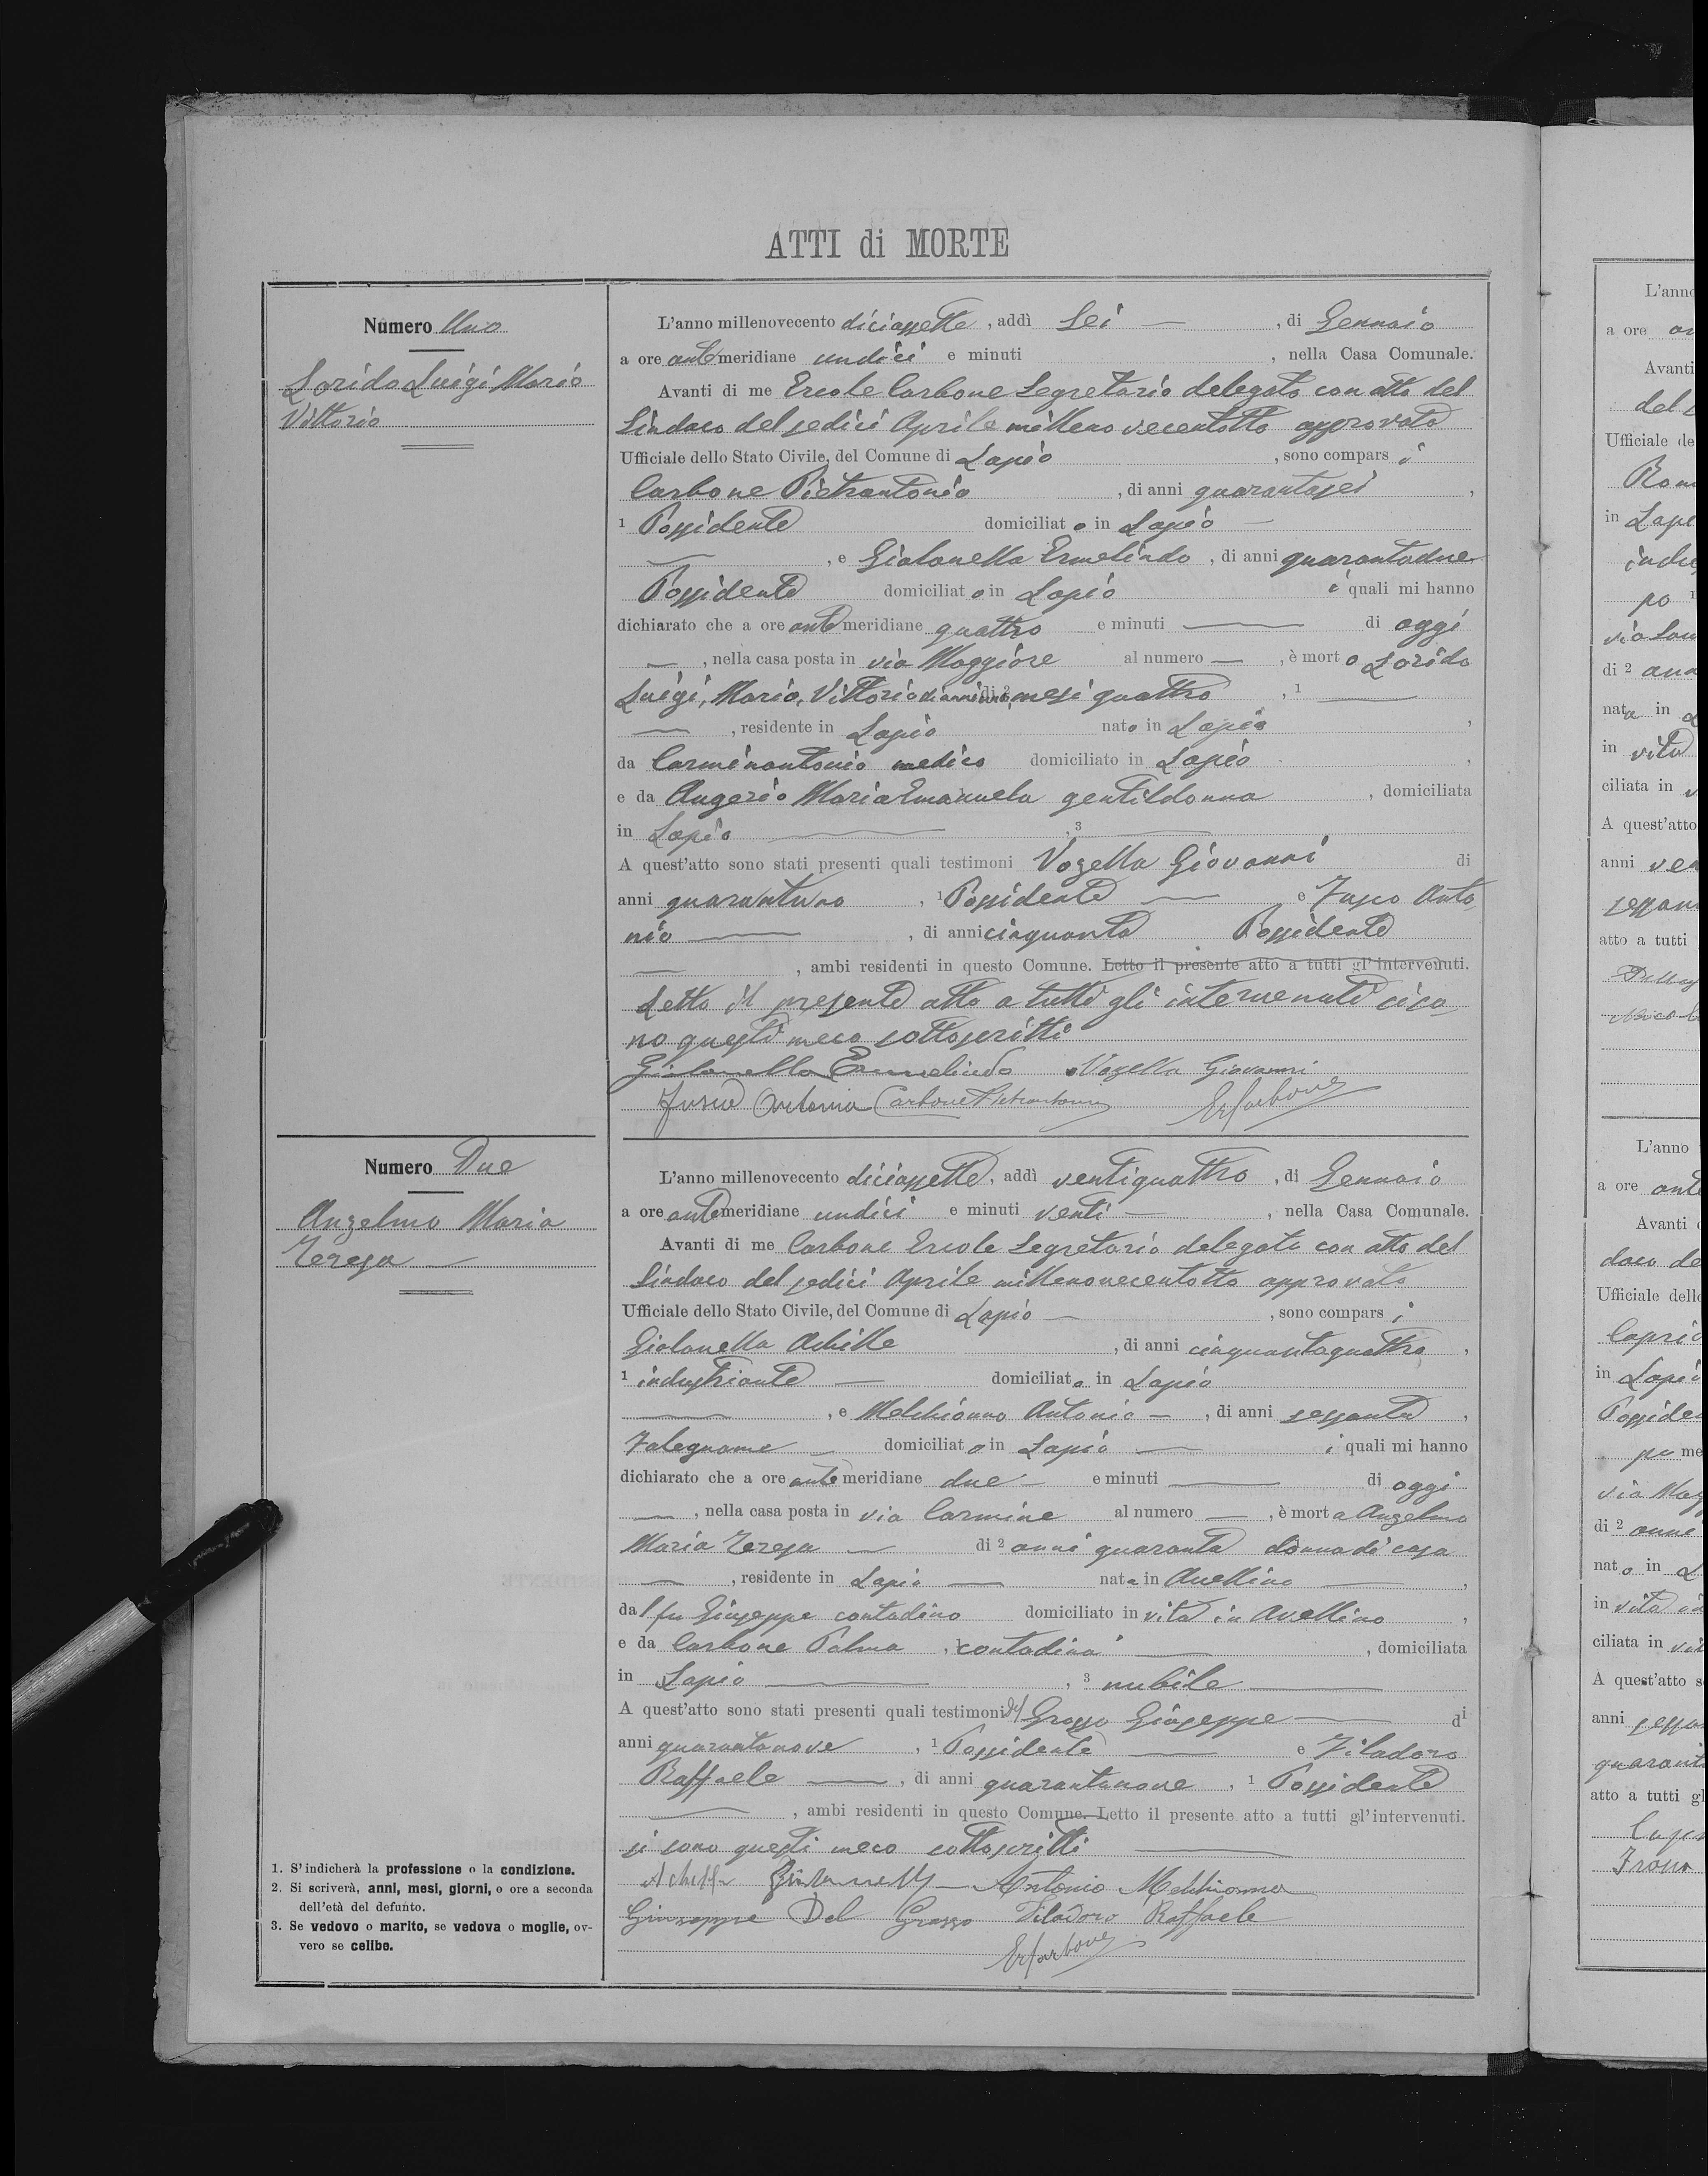 ATTI di MORTE
Numero Uno
Lorido Luigi Mario
Vittorio
L'anno millenovecento diciassette, addì Sei — , di Gennaio
a ore antemeridiane undici e minuti , nella Casa Comunale.
Avanti di me Ercole Carbone Segretario delegato con atto del
Sindaco del sedici Aprile millenovecentotto approvato
Ufficiale dello Stato Civile, del Comune di Lapio , sono comparsi
Carbone Pietrantonio , di anni quarantasei ,
1 Possidente domiciliato in Lapio —
— , e Giolonella Ermelindo , di anni quarantadue
Possidente domiciliato in Lapio i quali mi hanno
dichiarato che a ore antemeridiane quattro e minuti — di oggi
— , nella casa posta in via Maggiore al numero — , è morto Lorido
Luigi, Mario, Vittorio di anni uno, mesi quattro , 1 —
— , residente in Lapio nato in Lapio ,
da Carminantonio medico domiciliato in Lapio ,
e da Angerio Maria Emanuela gentildonna , domiciliata
in Lapio — , 3 —
A quest'atto sono stati presenti quali testimoni Vozella Giovanni di
anni quarantuno , 1 Possidente — e Fusco Anto
nio — , di anni cinquanta Possidente
— , ambi residenti in questo Comune. Letto il presente atto a tutti gl'intervenuti.
Letto il presente atto a tutti gli intervenuti si so
no questi meco sottoscritti
Giolonella Ermelindo Vozella Giovanni
Fusco Antonio Carbone Pietrantonio ErCarbone
Numero Due
Anzelmo Maria
Teresa —
L'anno millenovecento diciassette, addì ventiquattro , di Gennaio
a ore antemeridiane undici e minuti venti — , nella Casa Comunale.
Avanti di me Carbone Ercole Segretario delegato con atto del
Sindaco del sedici Aprile millenovecentotto approvato
Ufficiale dello Stato Civile, del Comune di Lapio — , sono comparsi
Giolonella Achille , di anni cinquantaquattro ,
1 industriante — domiciliato in Lapio
— , e Melchionno Antonio — , di anni sessanta ,
Falegname — domiciliato in Lapio — i quali mi hanno
dichiarato che a ore antemeridiane due — e minuti — di oggi
— , nella casa posta in via Carmine al numero — , è morta Anzelmo
Maria Teresa — di 2 anni quaranta donna di casa
— , residente in Lapio — nata in Avellino — ,
dal fu Giuseppe contadino domiciliato in vita in Avellino ,
e da Carbone Palma , contadina — , domiciliata
in Lapio — , 3 nubile —
A quest'atto sono stati presenti quali testimoni Del Grosso Giuseppe — di
anni quarantanove , 1 Possidente — e Filadoro
Raffaele — , di anni quarantanove , 1 Possidente
— , ambi residenti in questo Comune. Letto il presente atto a tutti gl'intervenuti.
si sono questi meco sottoscritti —
Achille Giolonella — Antonio Melchionna
Giuseppe Del Grosso Filadoro Raffaele
ErCarbone
1. S'indicherà la professione o la condizione.
2. Si scriverà, anni, mesi, giorni, o ore a seconda
dell'età del defunto.
3. Se vedovo o marito, se vedova o moglie, ov-
vero se celibe.
L'anno
a ore
Avanti
del
Ufficiale de
in Lapi
po 1
di 2
nata in
in vita
ciliata in
A quest'atto
anni
atto a tutti
L'anno
a ore ant
Avanti
daco de
Ufficiale dello
in Lapio
Posside
me
via Mag
di 2
nato in L
in vita in
ciliata in
A quest'atto s
anni
quarant
atto a tutti gl